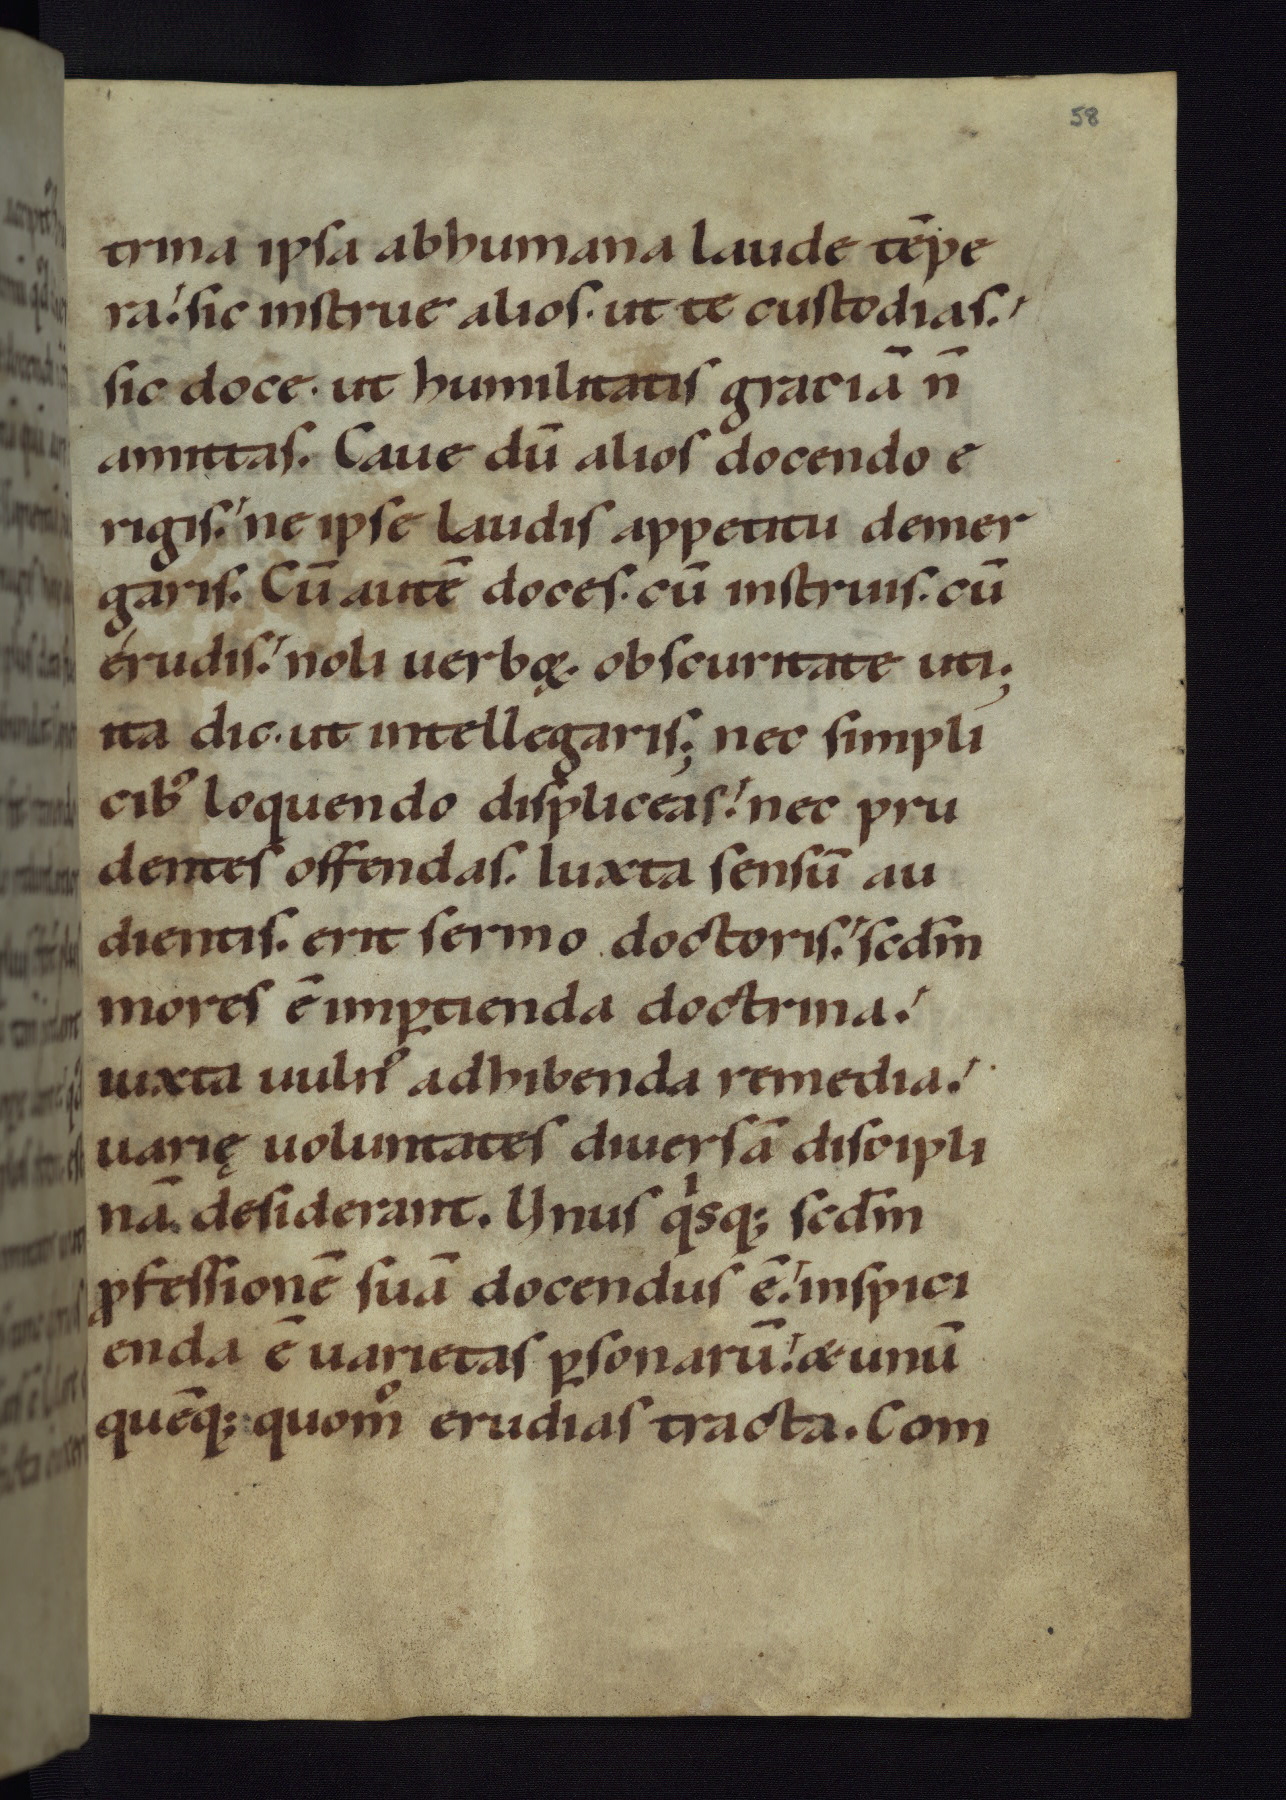 58
trina ipsa abhumana laude tēpe
ra! sic instrue alios. ut te custodias!
sic doce. ut humilitatis graciā n̄
amittas. Caue dū alios docendo e
rigis! ne ipse laudis appetitu demer
garis. Cū autē doces. cū instruis. cū
erudis! noli uerboꝝ. obscuritate uti;
ita dic. ut intellegaris; nec simpli
cibꝰ loquendo displiceas! nec pru
dentes offendas. Iuxta sensū au
dientis. erit sermo doctoris! scdm̄
mores ē imꝑtienda doctrina!
iuxta uulnꝰ adhibenda remedia!
uarię uoluntates diuersā discipli
nā desiderant. Unus qͥsq; scdm̄
ꝓfessionē suā docendus ē! inspici
enda ē uarietas ꝑsonarū! & unū
quēq; quom̊ erudias tracta. Com